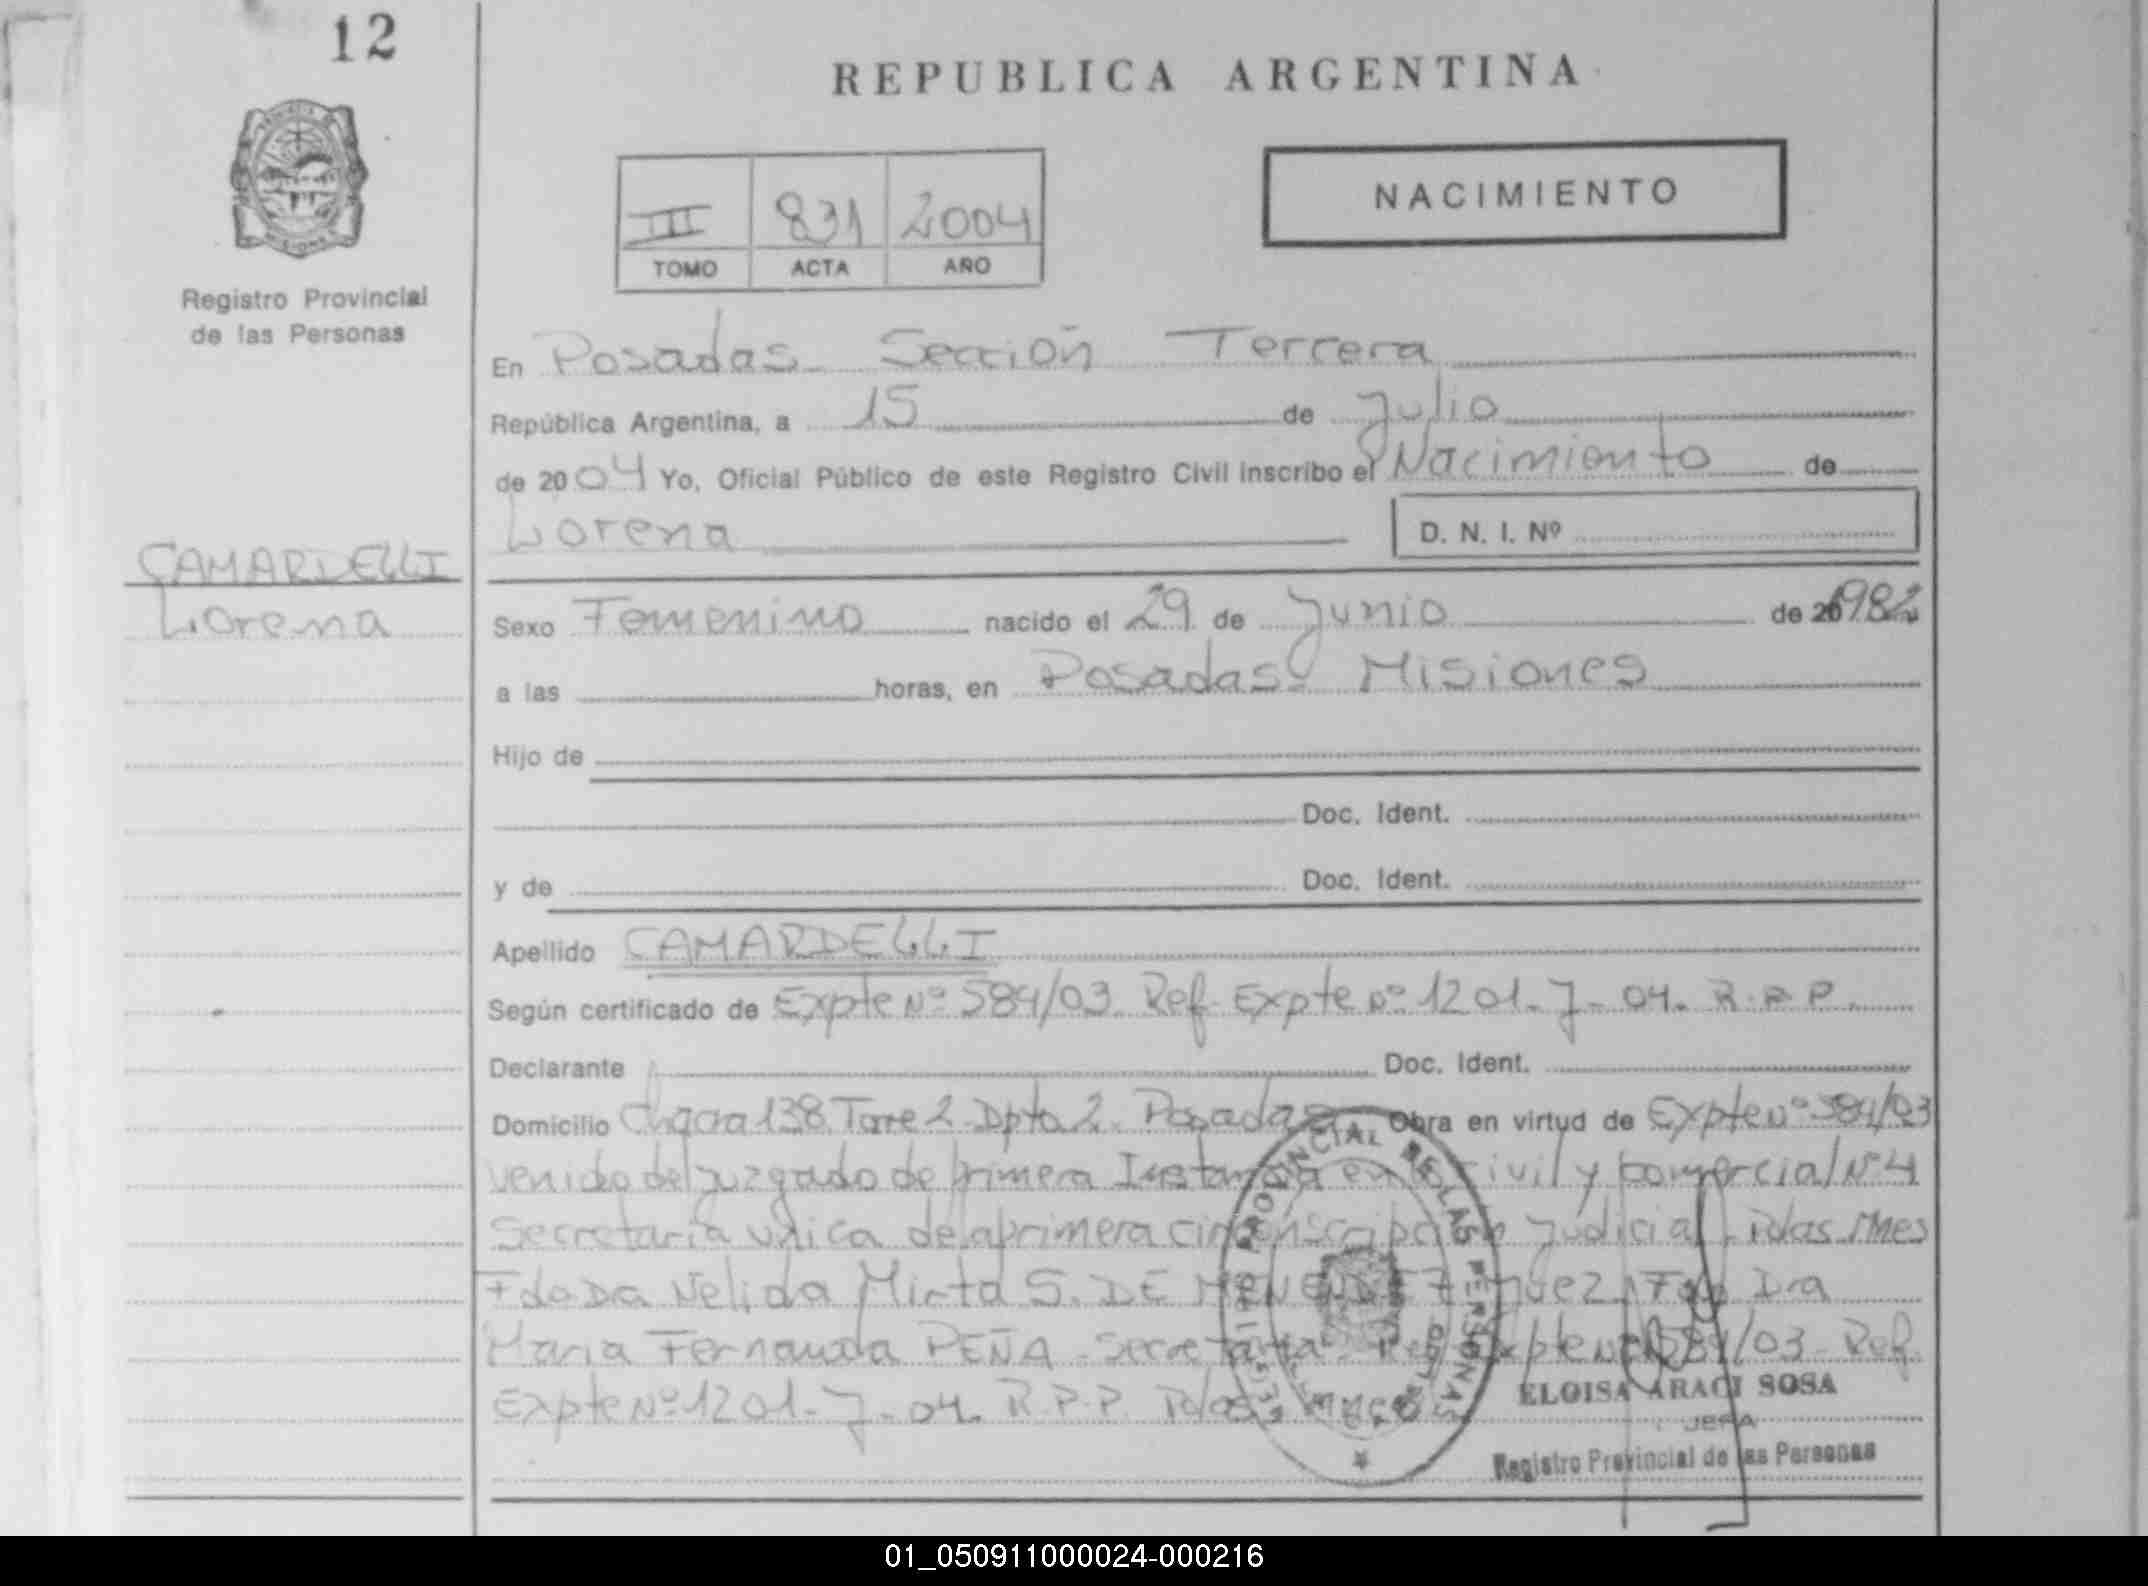 12
REPUBLICA ARGENTINA
NACIMIENTO
III 831 2004
TOMO ACTA AÑO
Registro Provincial
de las Personas
En Posadas Sección Tercera
República Argentina, a 15 de Julio
de 2004 Yo, Oficial Público de este Registro Civil inscribo el Nacimiento de
Lorena D. N. I. Nº
CAMARDELLI
Lorena
Sexo Femenino nacido el 29 de Junio de 1982
a las horas, en Posadas- Misiones
Hijo de
Doc. Ident.
y de Doc. Ident.
Apellido CAMARDELLI
Según certificado de Expte Nº 584/03. Ref. Expte Nº 1201-J-04. R.P.P.
Declarante Doc. Ident.
Domicilio Chacra 138 Torre 2 Dpto 2. Posadas Obra en virtud de Expte Nº 584/03
venido del juzgado de primera Instancia en lo civil y comercial Nº 4
Secretaria unica de la primera circunscripción judicial. Pdas. Mnes
Fdo Dra Nelida Mirta S. DE MENENDEZ Juez. Fdo Dra
Maria Fernanda PEÑA - Secretaria. Ref. Expte Nº 584/03 - Ref.
Expte Nº 1201-J-04. R.P.P. Pdas
PROVINCIAL DE LAS PERSONAS
ELOISA ARACI SOSA
JEFA
Registro Provincial de las Personas
01_050911000024-000216